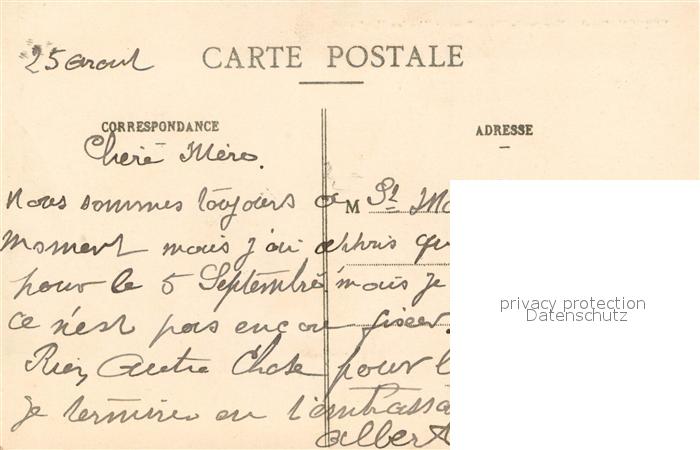 25 aout
CARTE POSTALE
CORRESPONDANCE
ADRESSE
Chere Mère.
Nous sommes toujours a M St
moment mais j'ai appris qu
pour le 5 Septembre mais je
ce n'est pas encore fixer.
Rien Autre Chose pour l
Je termine en t'embrassa
albert
privacy protection
Datenschutz